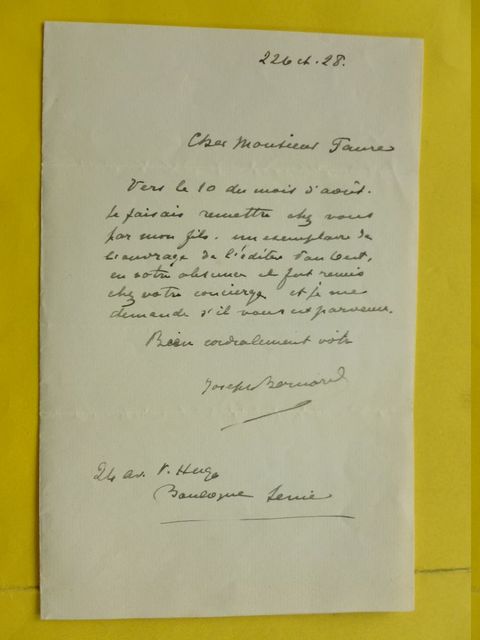 22 oct. 28.
Cher Monsieur Faure
Vers le 10 du mois d'août.
Je faisais remettre chez vous
par mon fils. un exemplaire de
l'ouvrage de l'éditeur Van Oest,
en votre absence il fut remis
chez votre concierge et je me
demande s'il vous est parvenu.
Bien cordialement votre
Joseph Bernard
24 av. V. Hugo
Boulogne Seine